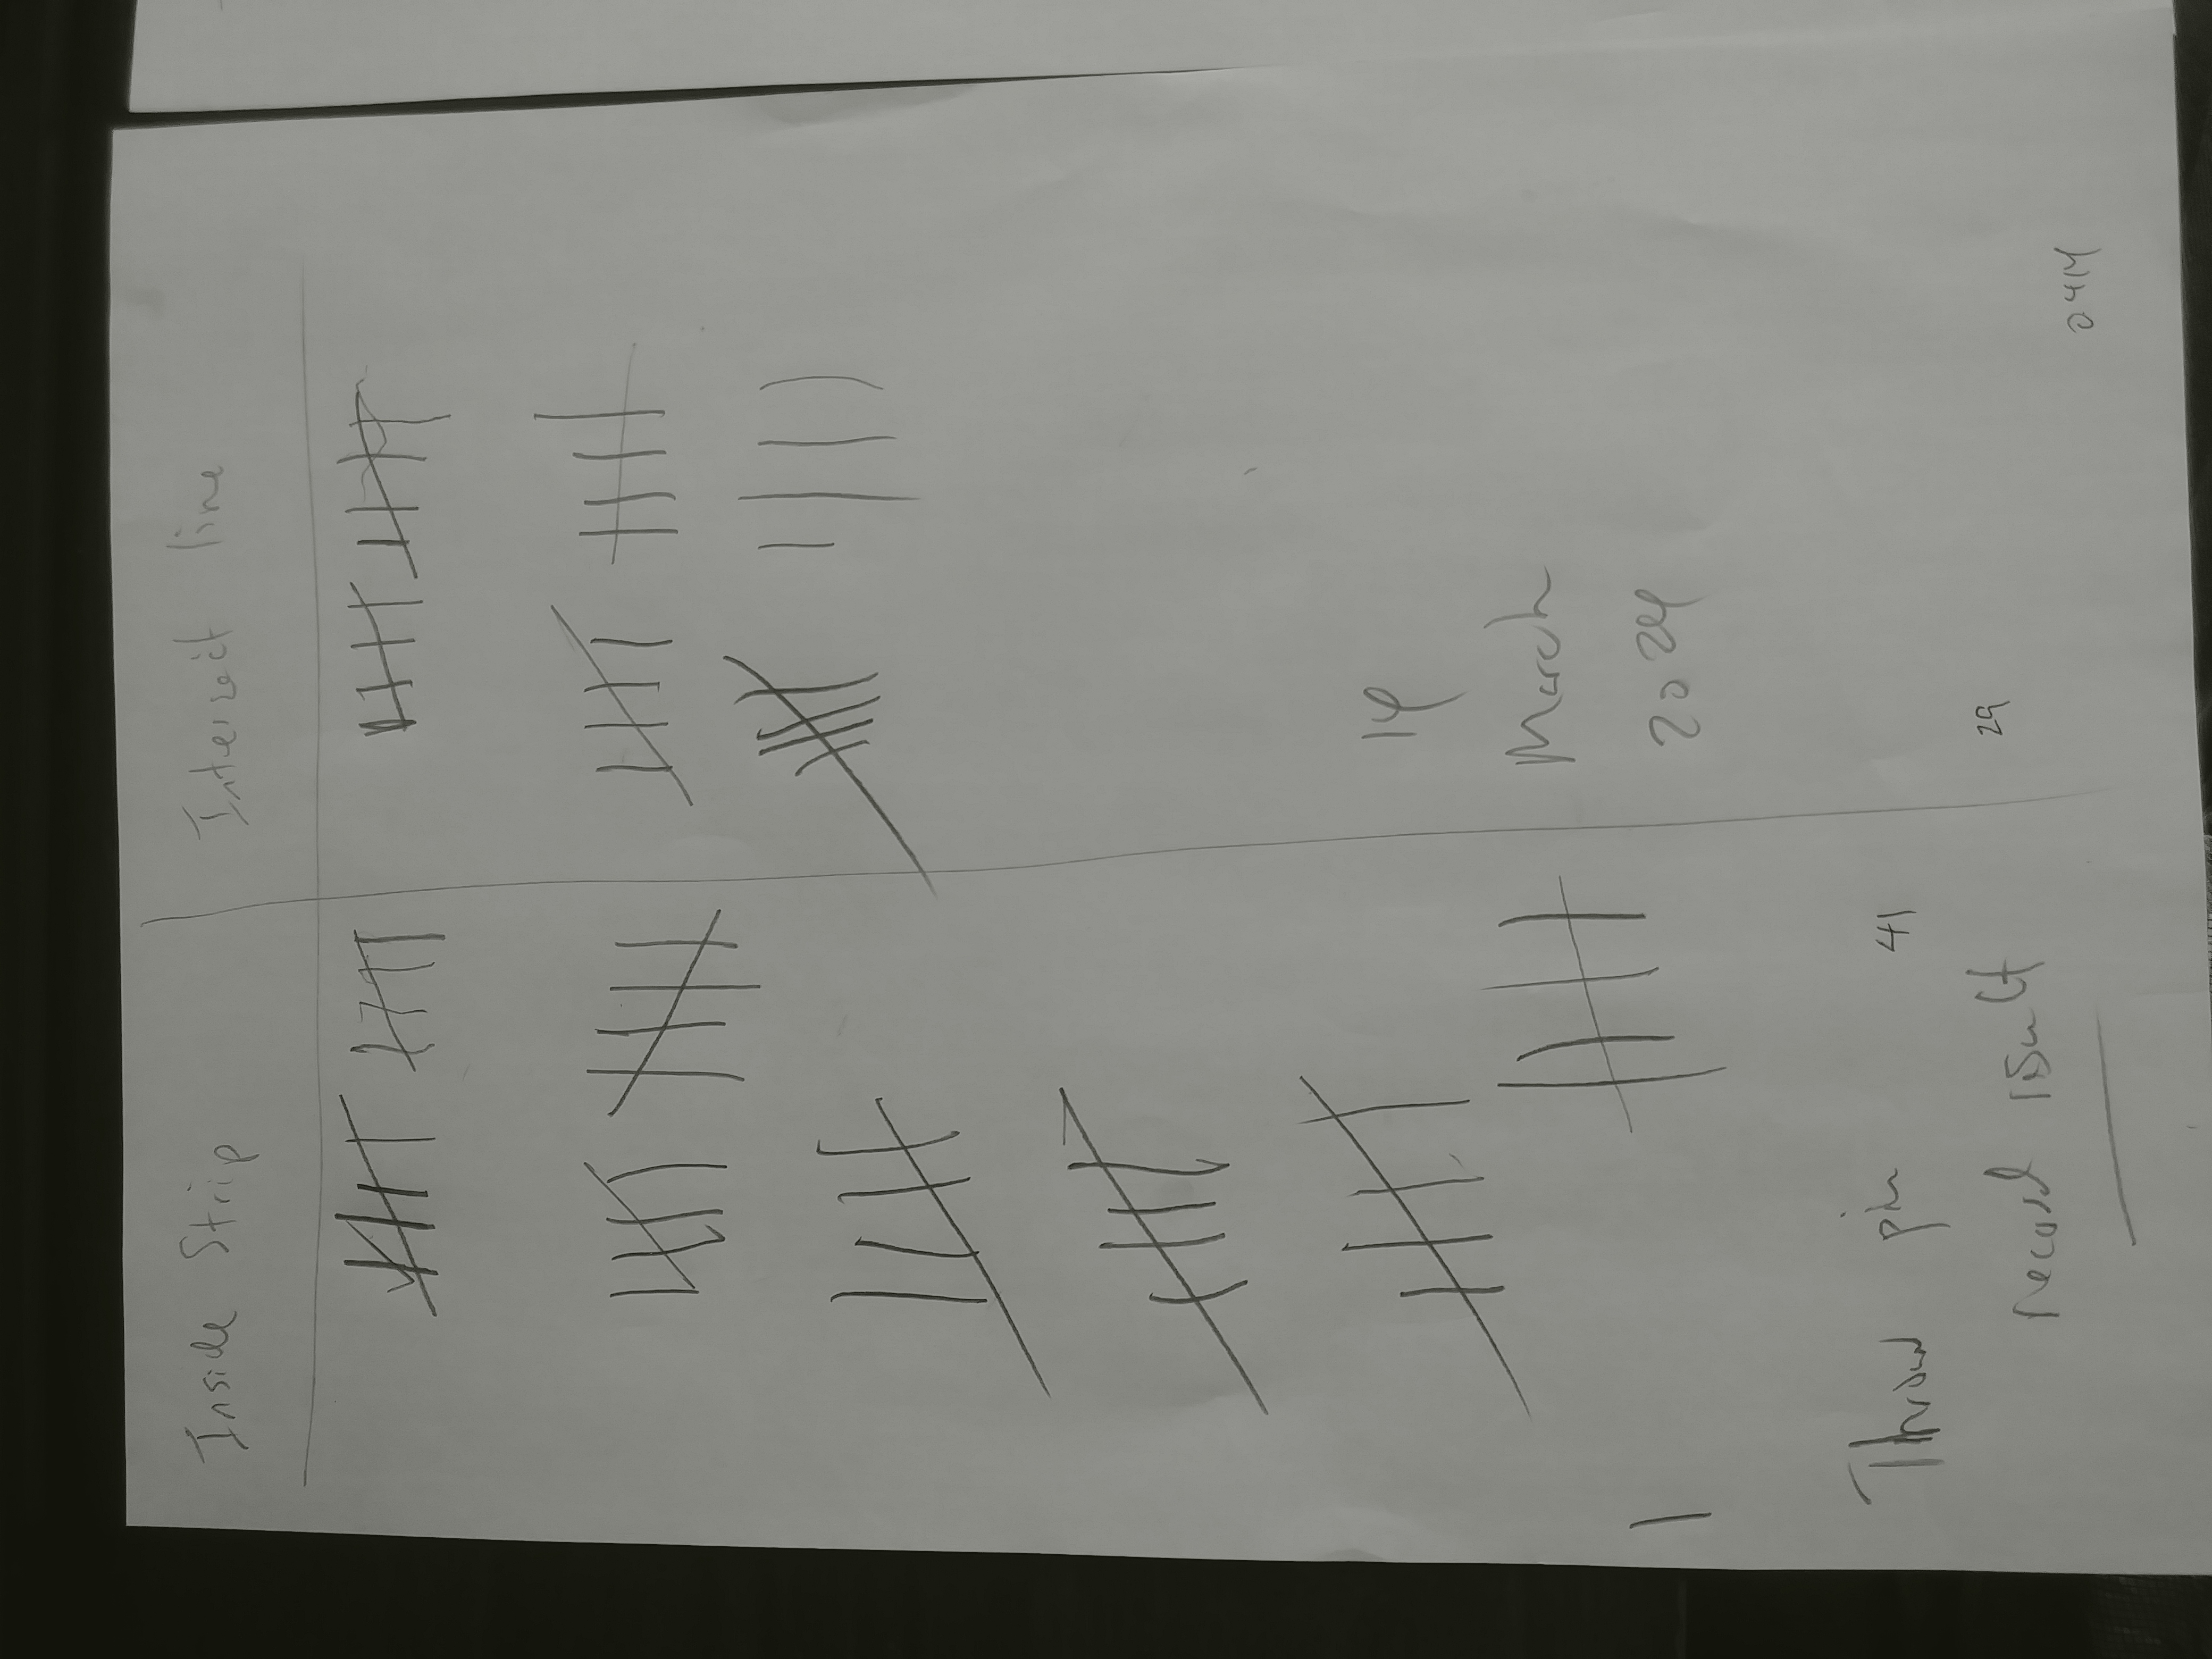 Inside Strip
Intersect line
14
March
2024
Throw pin 41
record result
29
0.414